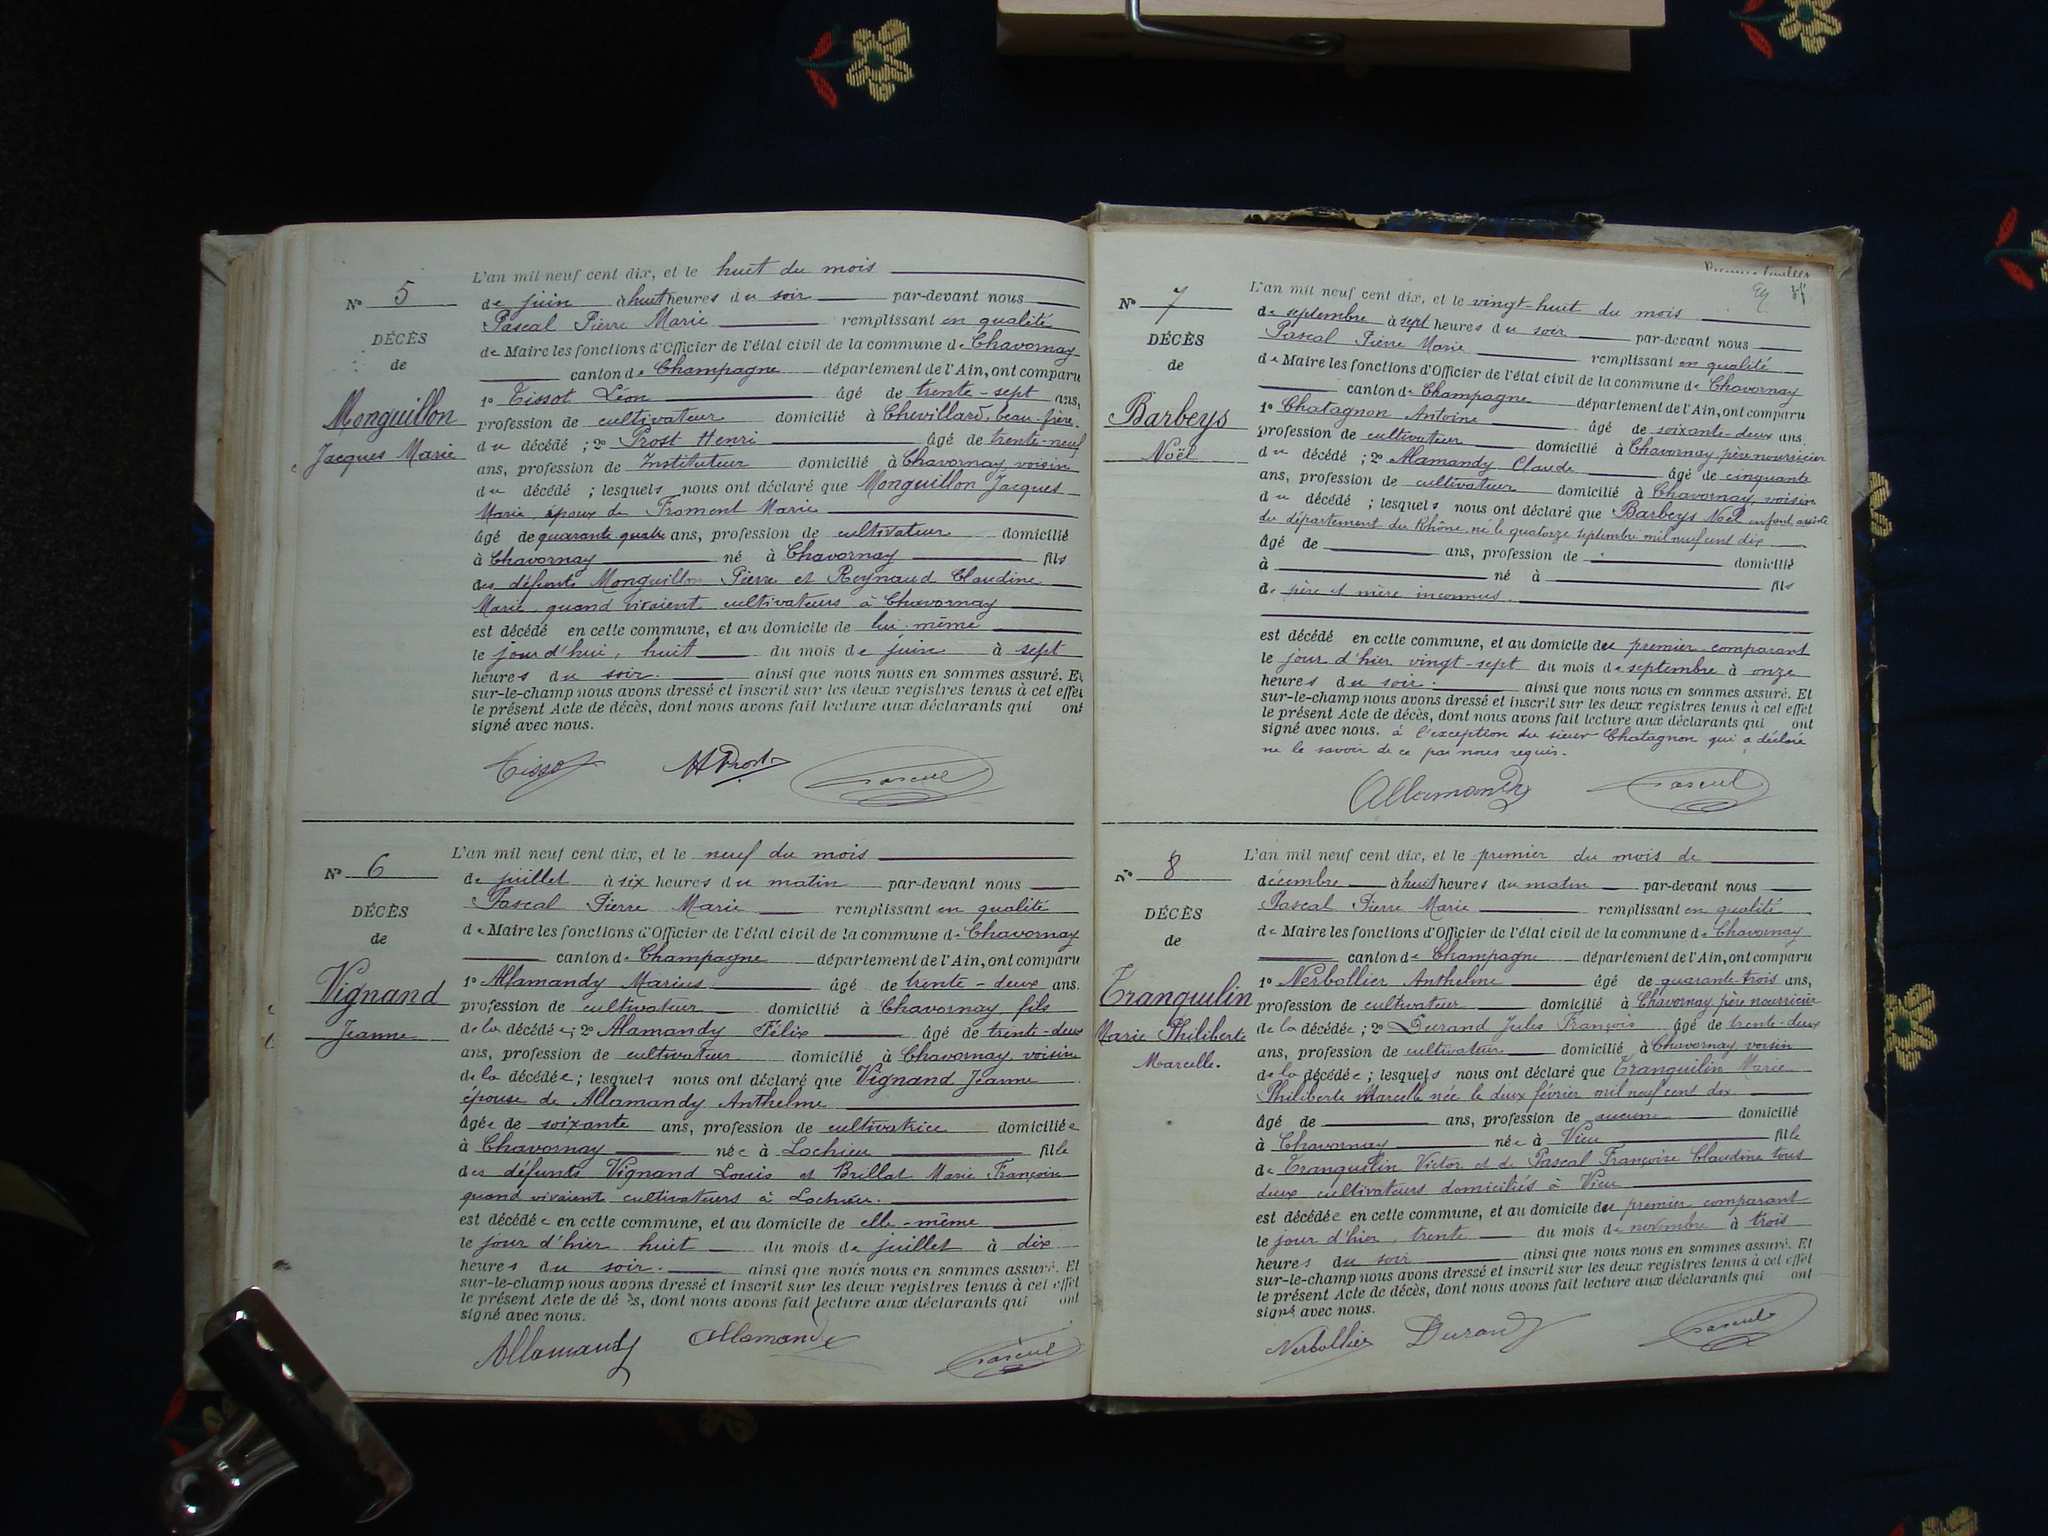 L'an mil neuf cent dix, et le huit du mois
N° 5
de juin à huit heures du soir par-devant nous
Pascal Pierre Marie remplissant en qualité
DÉCÈS
de Maire les fonctions d'Officier de l'état civil de la commune de Chavornay
de
canton de Champagne département de l'Ain, ont comparu
1° Tissot Léon âgé de trente-sept ans,
Monguillon
profession de cultivateur domicilié à Chevillard, beau-frère
Jacques Marie
du décédé ; 2° Prost Henri âgé de trente-neuf
ans, profession de Instituteur domicilié à Chavornay, voisin
du décédé ; lesquels nous ont déclaré que Monguillon Jacques
Marie, époux de Froment Marie
âgé de quarante quatre ans, profession de cultivateur domicilié
à Chavornay né à Chavornay fils
des défunts Monguillon Pierre et Reynaud Claudine
Marie quand vivaient cultivateurs à Chavornay
est décédé en cette commune, et au domicile de lui-même
le jour d'hui, huit du mois de juin à sept
heures du soir. ainsi que nous nous en sommes assuré. Et
sur-le-champ nous avons dressé et inscrit sur les deux registres tenus à cet effet
le présent Acte de décès, dont nous avons fait lecture aux déclarants qui ont
signé avec nous.
Tissot HProst Pascal
L'an mil neuf cent dix, et le neuf du mois
N° 6
de juillet à six heures du matin par-devant nous
Pascal Pierre Marie remplissant en qualité
DÉCÈS
de Maire les fonctions d'Officier de l'état civil de la commune de Chavornay
de
canton de Champagne département de l'Ain, ont comparu
1° Allamandy Marius âgé de trente-deux ans.
Vignand
profession de cultivateur domicilié à Chavornay fils
Jeanne
de la décédée ; 2° Alamandy Félix âgé de trente-deux
ans, profession de cultivateur domicilié à Chavornay, voisin
de la décédée ; lesquels nous ont déclaré que Vignand Jeanne
épouse de Allamandy Anthelme
âgée de soixante ans, profession de cultivatrice domiciliée
à Chavornay née à Lochieu fille
des défunts Vignand Louis et Brillat Marie Françoise
quand vivaient cultivateurs à Lochieu.
est décédée en cette commune, et au domicile de elle-même
le jour d'hier huit du mois de juillet à dix
heures du soir. ainsi que nous nous en sommes assuré. Et
sur-le-champ nous avons dressé et inscrit sur les deux registres tenus à cet effet
le présent Acte de décès, dont nous avons fait lecture aux déclarants qui ont
signé avec nous.
Allamandy Allamandy Pascal
L'an mil neuf cent dix, et le vingt-huit du mois
N° 7
de septembre à sept heures du soir par-devant nous
Pascal Pierre Marie remplissant en qualité
DÉCÈS
de Maire les fonctions d'Officier de l'état civil de la commune de Chavornay
de
canton de Champagne département de l'Ain, ont comparu
1° Chatagnon Antoine âgé de soixante-deux ans.
Barbeys
profession de cultivateur domicilié à Chavornay, père nourricier
Noël
du décédé ; 2° Alamandy Claude âgé de cinquante
ans, profession de cultivateur domicilié à Chavornay, voisin
du décédé ; lesquels nous ont déclaré que Barbeys Noël enfant assisté
du département du Rhône, né le quatorze septembre mil neuf cent dix
âgé de ans, profession de domicilié
à né à fils
de père et mère inconnus.
est décédé en cette commune, et au domicile du premier comparant
le jour d'hier vingt-sept du mois de septembre à onze
heures du soir. ainsi que nous nous en sommes assuré. Et
sur-le-champ nous avons dressé et inscrit sur les deux registres tenus à cet effet
le présent Acte de décès, dont nous avons fait lecture aux déclarants qui ont
signé avec nous. à l'exception du sieur Chatagnon qui a déclaré
ne le savoir de ce par nous requis.
Allamandy Pascal
L'an mil neuf cent dix, et le premier du mois de
N° 8
décembre à huit heures du matin par-devant nous
Pascal Pierre Marie remplissant en qualité
DÉCÈS
de Maire les fonctions d'Officier de l'état civil de la commune de Chavornay
de
canton de Champagne département de l'Ain, ont comparu
1° Nerbollier Anthelme âgé de quarante-trois ans,
Tranquilin
profession de cultivateur domicilié à Chavornay, père nourricier
Marie Philiberte
de la décédée ; 2° Durand Jules François âgé de trente-deux
ans, profession de cultivateur domicilié à Chavornay voisin
Marcelle.
de la décédée ; lesquels nous ont déclaré que Tranquilin Marie
Philiberte Marcelle née le deux février mil neuf cent dix
âgé de ans, profession de aucune domicilié
à Chavornay née à Vieu fille
de Tranquilin Victor et de Pascal Françoise Claudine tous
deux cultivateurs domiciliés à Vieu
est décédée en cette commune, et au domicile du premier comparant
le jour d'hier, trente du mois de novembre à trois
heures du soir ainsi que nous nous en sommes assuré. Et
sur-le-champ nous avons dressé et inscrit sur les deux registres tenus à cet effet
le présent Acte de décès, dont nous avons fait lecture aux déclarants qui ont
signé avec nous.
Nerbollier Durand Pascal